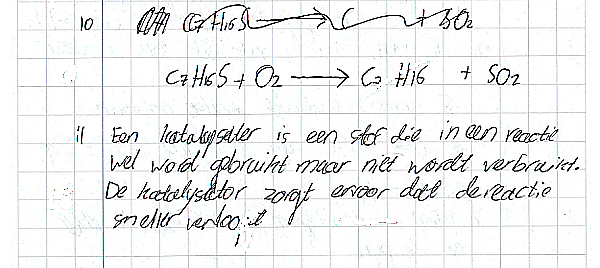 10 C7H16S → C + SO2
C7H16S + O2 → C7 H16 + SO2
11 Een katalysater is een stof die in een reactie
wel word gebruikt maar niet wordt verbruikt.
De katalysator zorgt ervoor dat de reactie
sneller verloopt